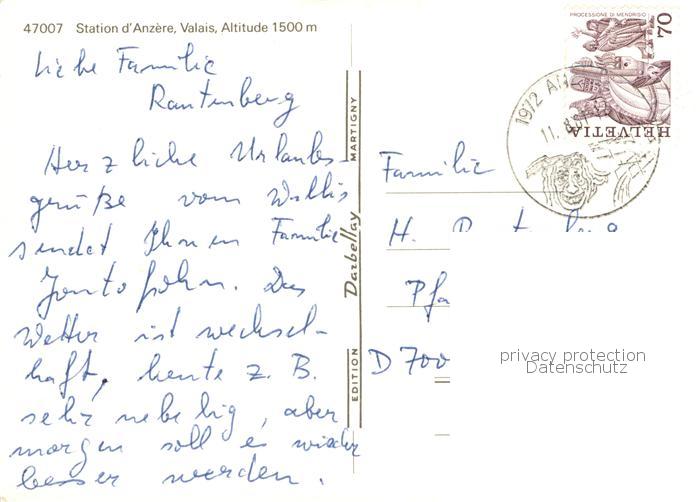 47007 Station d'Anzère, Valais, Altitude 1500 m
Liebe Familie
Rautenberg
Herzliche Urlaubs-
grüße vom Wallis
sendet Ihnen Familie
Das
Wetter ist wechsel-
haft, heute z. B.
sehr nebelig, aber
morgen soll es wieder
besser werden.
EDITION Darbellay MARTIGNY
PROCESSIONE DI MENDRISIO
70
HELVETIA
1972
11.
Familie
H.
Pfa
D 700
privacy protection
Datenschutz